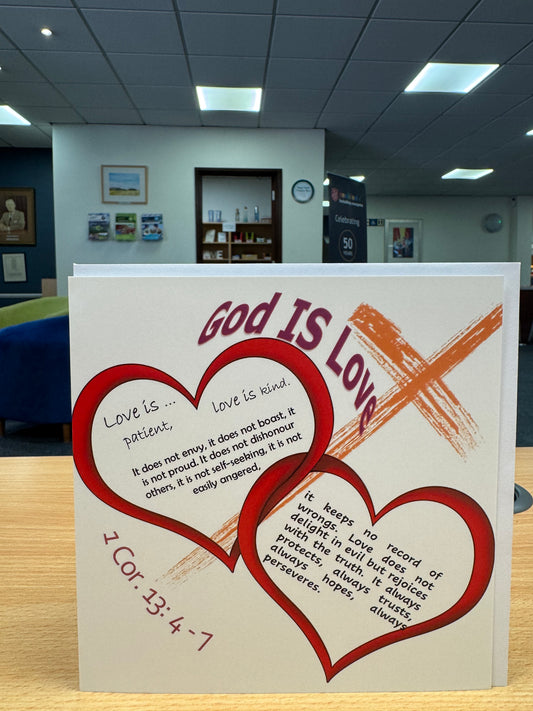 Celebrating
50
God IS Love
Love is ...
patient,
Love is kind.
It does not envy, it does not boast, it
is not proud. It does not dishonour
others, it is not self-seeking, it is not
easily angered,
it keeps no record of
wrongs. Love does not
delight in evil but rejoices
with the truth. It always
protects, always trusts,
always hopes, always
perseveres.
1 Cor. 13: 4 -7